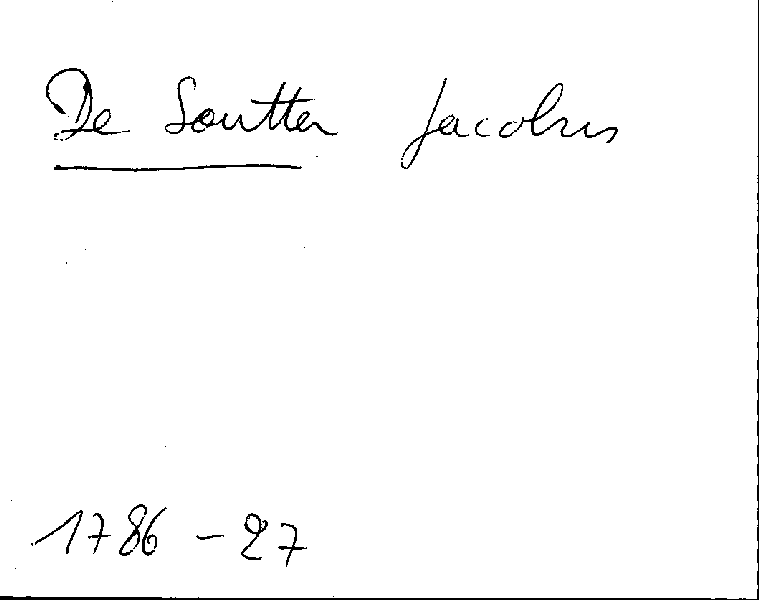 De Soutter Jacobus
1786 - 27